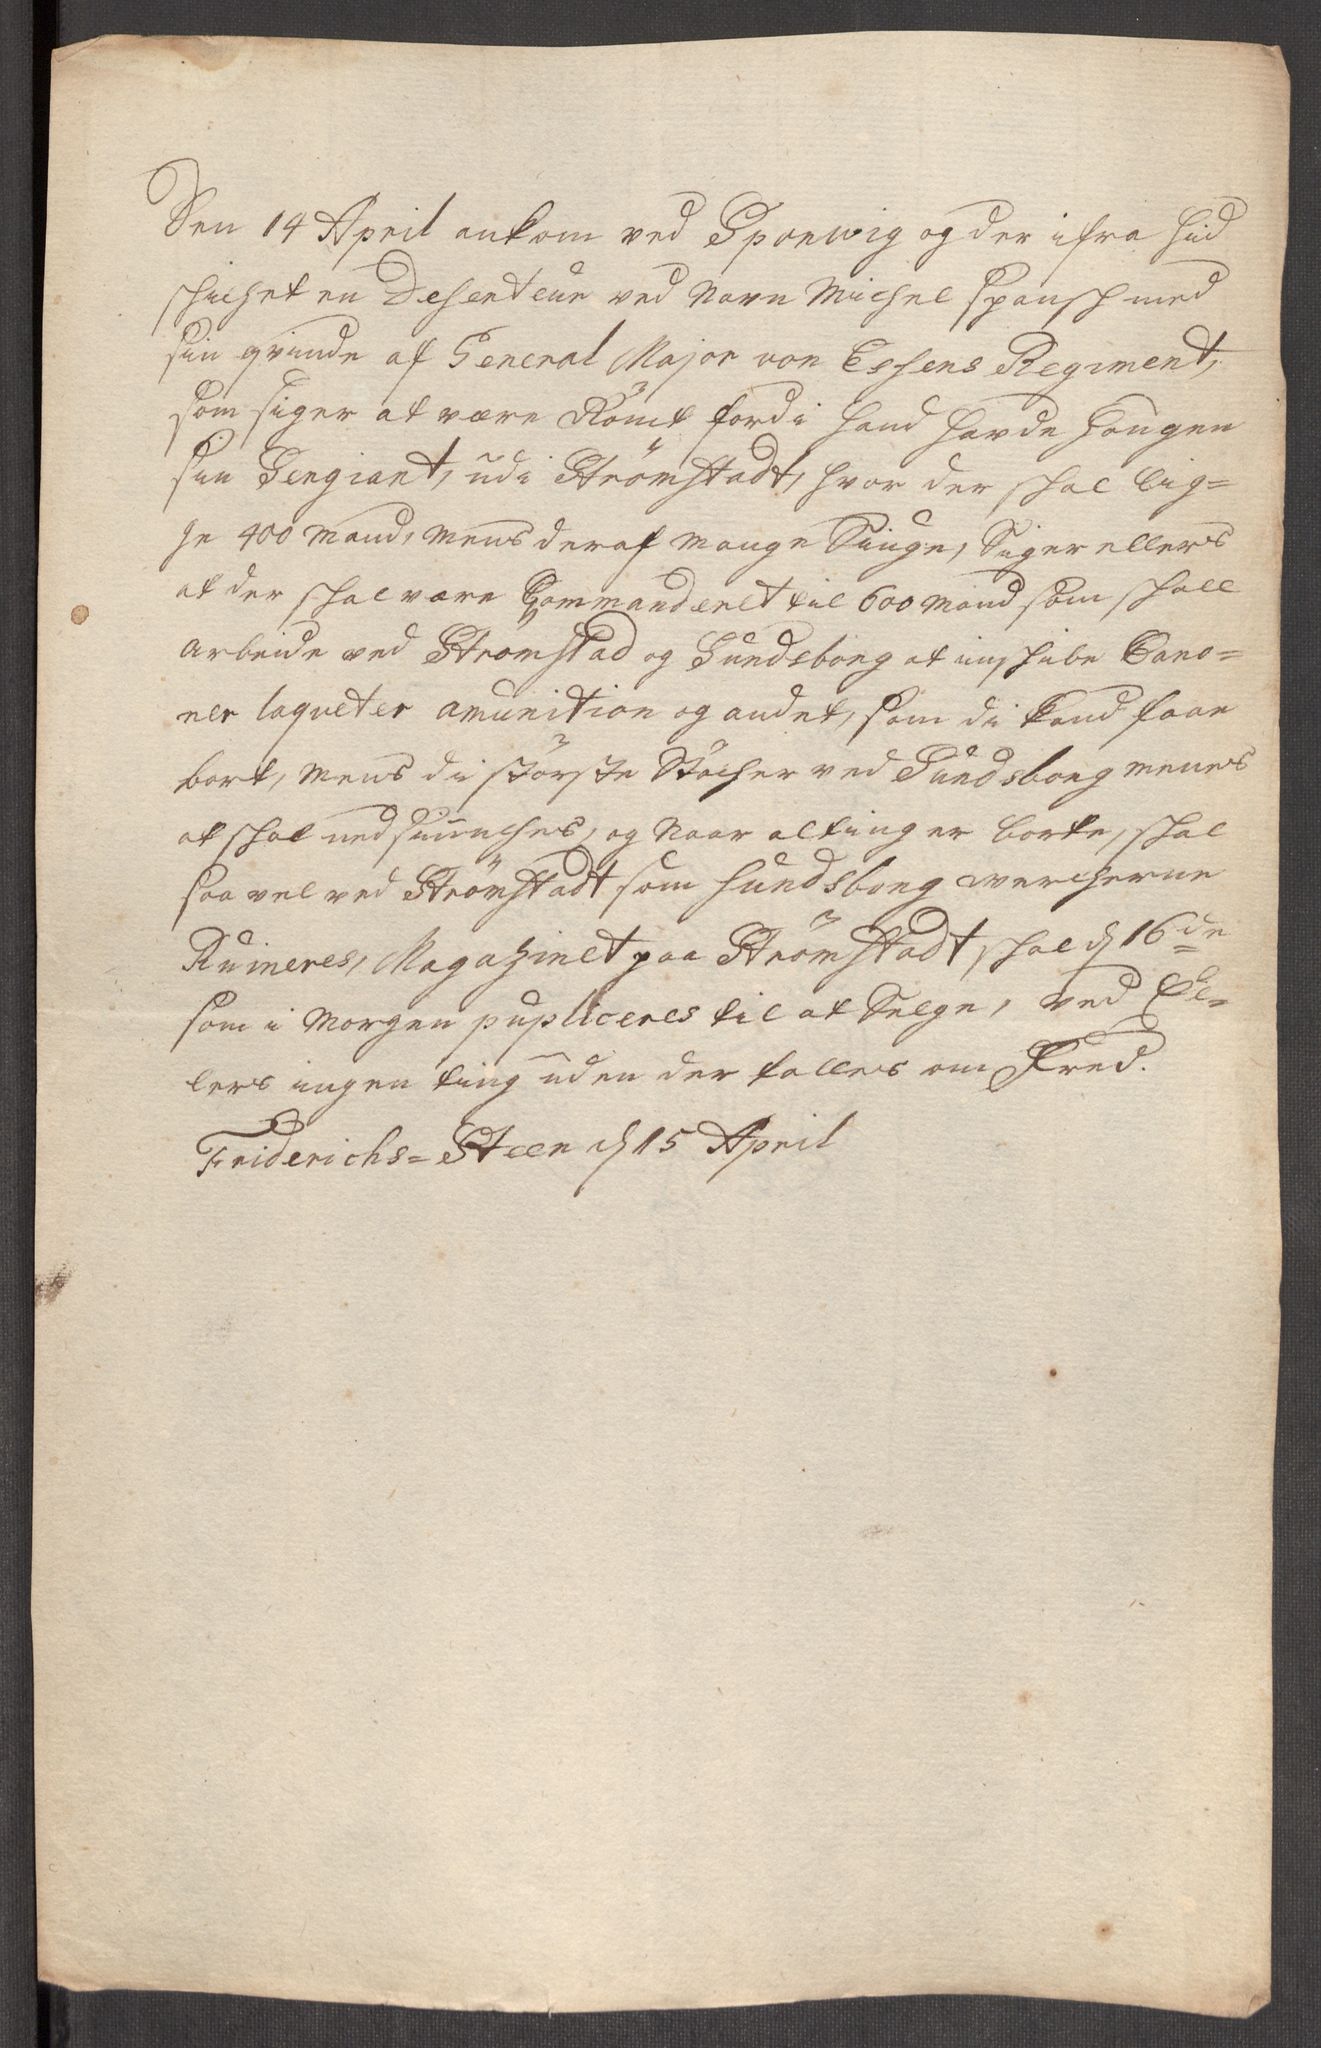 Den 14 April ankom ved Sponwig og der ifra hid
schichet en Deserteur ved Navn Michel Spansch med
sin qvinde af General Major von Essens Regiment,
som siger at være Römt fordi hand hafde haugen
sin Sergiant, udi Strömstadt, hvor der schal lig=
ge 400 Mand, mens deraf mange Siuge, Siger ellers
at der schal være Commanderet til 600 Mand som schall
arbeide ved Strömstad og Sundsborg at inschibe Cano=
ner laqveter amunition og andet, som di kand faae
bort, mens di störste Stöcher ved Sundsborg menes
at schal nedsiunches, og naar alting er borte, schal
saa vel ved Strömstadt som Sundsborg wercherne
Ruineres, Magazinet paa Strömstadt schal d 16de
som i Morgen pupliceres til at Selge, ved El=
lers ingen ting uden der talles om Fred.
Friderichs=Steen d 15 April